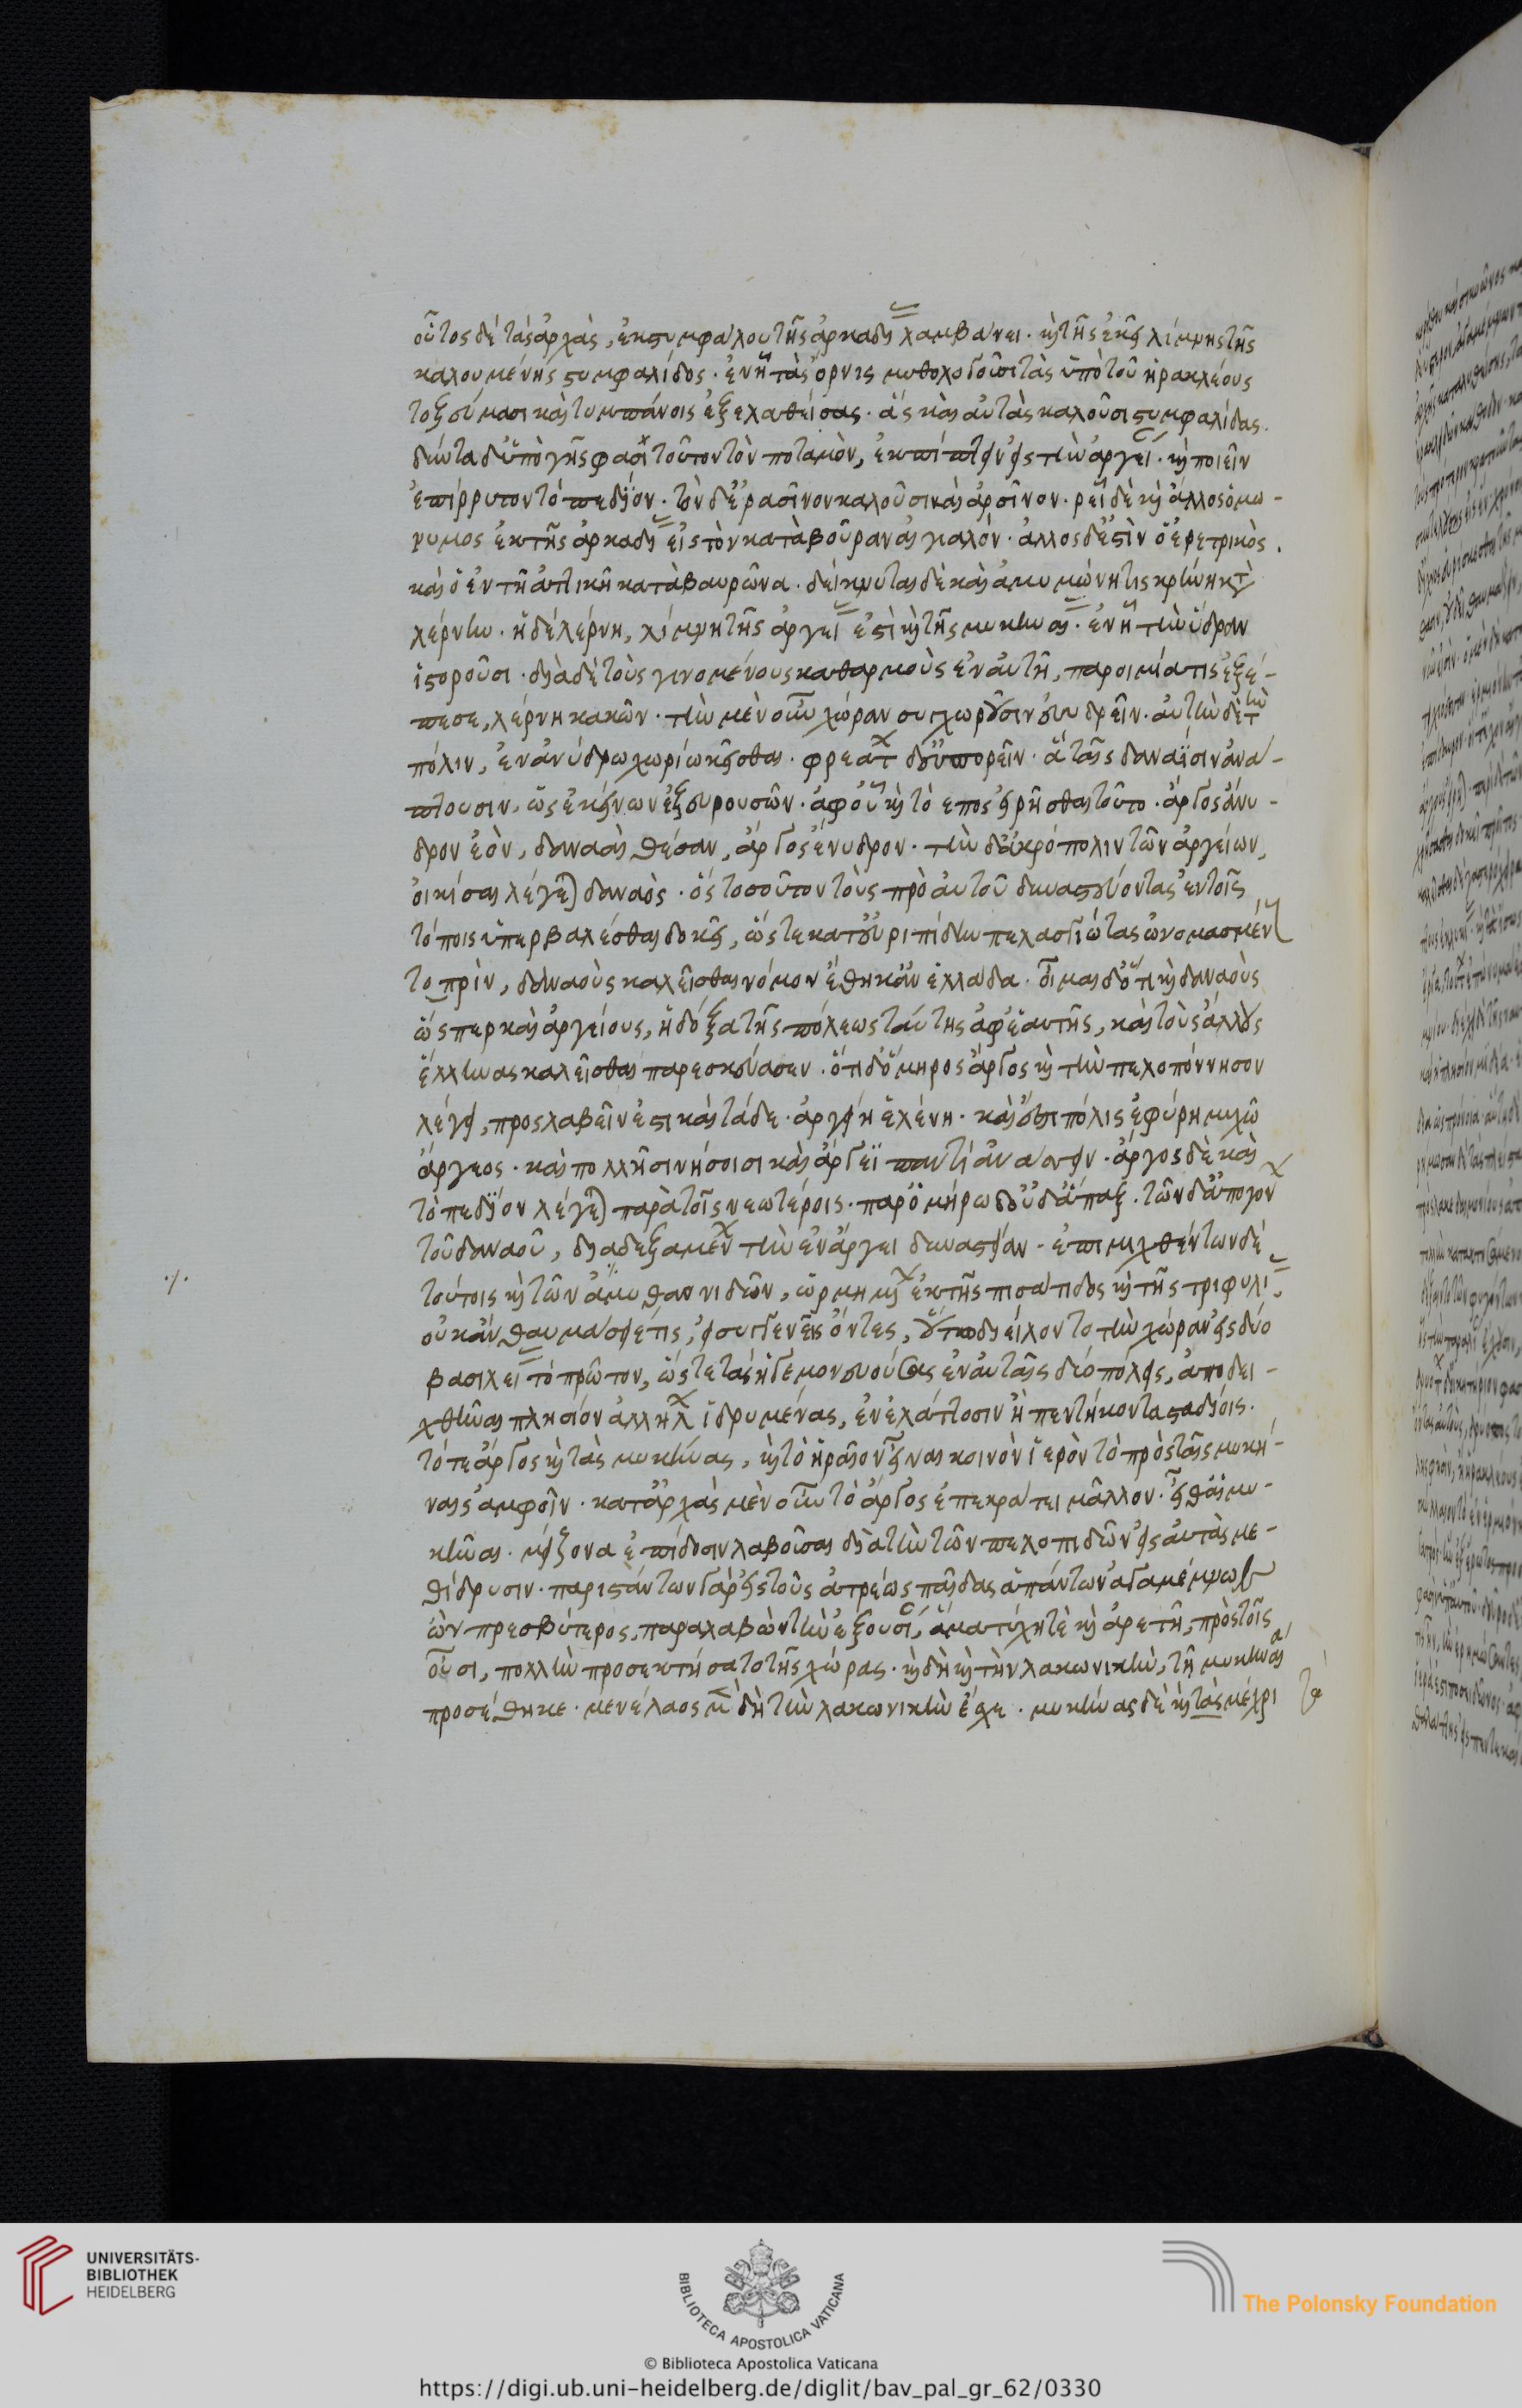 οὗτος δὲ τὰς ἀρχὰς, ἐκ στυμφάλου τῆς ἀρκαδι λαμβάνει. καὶ τῆς ἐκεῖ λίμνης τῆς
καλουμένης στυμφαλίδος. ἐν ᾗ τὰς ὄρνις μυθολογοῦσι τὰς ὑπὸ τοῦ ἡρακλέους
τοξεύμασι καὶ τυμπάνοις ἐξελαθείσας. ἃς καὶ αὐτὰς καλοῦσι στυμφαλίδας.
δύντα δ' ὑπὸ γῆς φασὶ τοῦτον τὸν ποταμὸν, ἐκπίπτειν εἰς τὴν ἀργεί. καὶ ποιεῖν
ἐπίρρυτον τὸ πεδίον. τὸν δ' ἐρασῖνον καλοῦσι καὶ ἀρσῖνον. ῥεῖ δὲ καὶ ἄλλος ὁμώ-
νυμος ἐκ τῆς ἀρκαδι εἰς τὸν κατὰ βοῦραν αἰγιαλόν. ἄλλος δ' ἐστὶν ὁ ἐρετρικὸς.
καὶ ὁ ἐν τῇ ἀττικῇ κατὰ βαυρῶνα. δείκνυται δὲ καὶ ἀμυμώνη τις κρήνη κατὰ
λέρνην. ἡ δὲ λέρνη, λίμνη τῆς ἀργεί ἐστὶ καὶ τῆς μυκηναι. ἐν ᾗ τὴν ὕδραν
ἱστοροῦσι. διὰ δὲ τοὺς γινομένους καθαρμοὺς ἐν αὐτῇ, παροιμία τις ἐξέ-
πεσε, λέρνη κακῶν. τὴν μὲν οὖν χώραν συγχωροῦσιν εὐυδρεῖν. αὐτὴν δὲ τὴν
πόλιν, ἐν ἀνύδρω χωρίω κεῖσθαι. φρεάτ δ' εὐπορεῖν. ἃ ταῖς δαναΐσιν ἀνά-
πτουσιν, ὡς ἐκείνων ἐξευρουσῶν. ἀφ' οὗ καὶ τὸ ἔπος εἰρῆσθαι τοῦτο. ἄργος ἄνυ-
δρον ἐὸν, δαναὰι θέσαν, ἄργος ἔνυδρον. τὴν δ' ἀκρόπολιν τῶν ἀργείων,
οἰκίσαι λέγεται δαναὸς. ὃς τοσοῦτον τοὺς πρὸ αὐτοῦ δυναστεύοντας ἐν τοῖς
τόποις ὑπερβαλέσθαι δοκεῖ, ὥστε κατ' εὐριπίδην πελασγιώτας ὠνομασμέν
τὸ πρὶν, δαναοὺς καλεῖσθαι νόμον ἔθηκ' ἀν ἑλλάδα. οἶμαι δ' ὅτι καὶ δαναοὺς
ὥσπερ καὶ ἀργείους, ἡ δόξα τῆς πόλεως ταύτης ἀφ' ἑαυτῆς, καὶ τοὺς ἄλλους
ἕλληνας καλεῖσθαι παρεσκεύασεν. ὅτι δ' ὅμηρος ἄργος καὶ τὴν πελοπόννησον
λέγει, προσλαβεῖν ἔστι καὶ τάδε. ἀργείη ἑλένη. καὶ ἔστι πόλις ἐφύρη μυχῶ
ἄργεος. καὶ πολλῇσι νήσοισι καὶ ἄργεϊ παντὶ ἀνάσσειν. ἄργος δὲ καὶ
τὸ πεδίον λέγεται παρὰ τοῖς νεωτέροις. παρ' ὁμήρω δ' οὐδ' ἅπαξ. τῶν δ' ἀπογόν
τοῦ δαναοῦ, διαδεξαμέν τὴν ἐν ἄργει δυναστείαν. ἐπιμιχθέντων δὲ
τούτοις καὶ τῶν ἀμυθαονιδῶν, ὡρμημ ἐκ τῆς πισάτιδος καὶ τῆς τριφυλί,
οὐκ ἂν θαυμάσειέ τις, εἰ συγγενεῖς ὄντες, οὕτω διείχοντο τὴν χώραν εἰς δύο
βασιλεί τὸ πρῶτον, ὥστε τὰς ἡγεμονευούσας ἐν αὐταῖς δύο πόλεις, ἀποδει-
χθῆναι πλησίον ἀλλήλ ἱδρυμένας, ἐν ἐλάττοσιν ἢ πεντήκοντα σταδίοις.
τό τε ἄργος καὶ τὰς μυκήνας, καὶ τὸ ἡραῖον εἶναι κοινὸν ἱερὸν τὸ πρὸς ταῖς μυκή-
ναις ἀμφοῖν. κατ' ἀρχὰς μὲν οὖν τὸ ἄργος ἐπεκράτει μᾶλλον. εἶθ' αἱ μυ-
κῆναι. μείζονα ἐπίδοσιν λαβοῦσαι διὰ τὴν τῶν πελοπιδῶν εἰς αὐτὰς με-
θίδρυσιν. παριστάντων γὰρ εἰς τοὺς ἀτρέως παῖδας ἁπάντων ἀγαμέμνων
ὢν πρεσβύτερος, παραλαβὼν τὴν ἐξουσί, ἅμα τύχῃ τὲ καὶ ἀρετῇ, πρὸς τοῖς
οὖσι, πολλὴν προσεκτήσατο τῆς χώρας. καὶ δὴ καὶ τὴν λακωνικὴν, τῇ μυκηναί
προσέθηκε. μενέλαος μὲν δὴ τὴν λακωνικὴν ἔσχε. μυκήνας δὲ καὶ τὰς μέχρι
τὰ
UNIVERSITÄTS-
BIBLIOTHEK
HEIDELBERG
BIBLIOTECA APOSTOLICA VATICANA
The Polonsky Foundation
© Biblioteca Apostolica Vaticana
https://digi.ub.uni-heidelberg.de/diglit/bav_pal_gr_62/0330